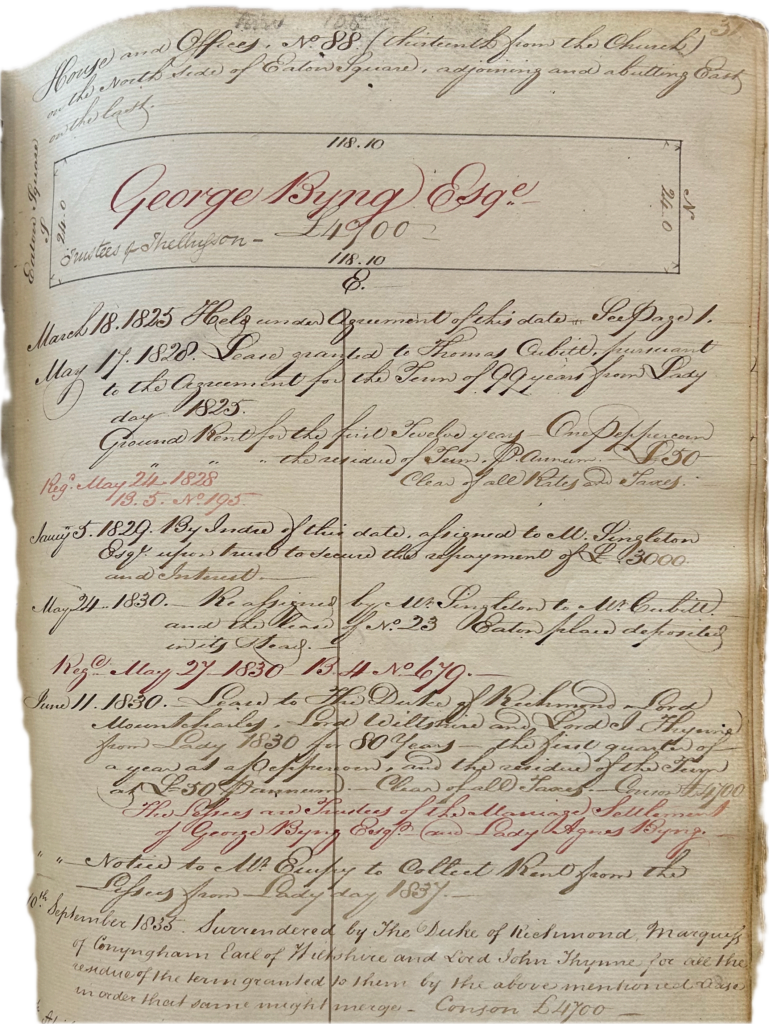 37
House and Offices, No. 88 (thirteenth from the Church)
on the North Side of Eaton Square, adjoining and abutting East
on the last.
118.10
Eaton Square
S
24.0
George Byng Esqre.
£4700
Trustees of Thellusson
N
24.0
118.10
E.
March 18. 1825 Held under Agreement of this date - See Page 1.
May 17. 1828. Lease granted to Thomas Cubitt, pursuant
to the Agreement for the Term of 99 years from Lady
day 1825.
Ground Rent for the first Twelve years - One Peppercorn
" " " the residue of Term Pr. Annum £50
Clear of all Rates and Taxes.
Regd. May 24. 1828
B. 5. No. 195.
Janry 5. 1829. By Indre of this date, assigned to M. Singleton
Esqr. upon trust to secure the repayment of £3000
and Interest.
May 24. 1830. Reassigned by Mr. Singleton to Mr. Cubitt
and the Lease of No. 23 Eaton place deposited
in its Stead.
Regd. May 27 1830 B. 4 No 679.
June 11. 1830. Lease to The Duke of Richmond - Lord
Mountcharles, Lord Wiltshire and Lord J. Thynne
from Lady 1830 for 80 Years - the first quarter of
a year at a Peppercorn, and the residue of the Term
at £50 Pr Annum - Clear of all Taxes - Conson £4700
The Lessees are Trustees of the Marriage Settlement
of George Byng Esqr. and Lady Agnes Byng.
" " Notice to Mr. to Collect Rent from the
Lessees from Lady day 1837.
10th September 1835. Surrendered by The Duke of Richmond, Marquess
of Conyngham Earl of Wiltshire and Lord John Thynne for all the
residue of the term granted to them by the above mentioned Lease
in order that same might merge - Conson £4700